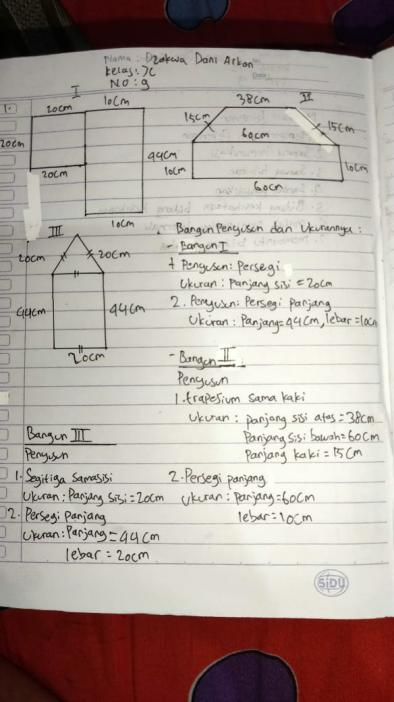 Nama : Dzakwa Dani Arkan
Kelas : 7C
No : 9
1.
I
20cm
10cm
20cm
20cm
44cm
10cm
II
38cm
15cm
15cm
60cm
10cm
10cm
60cm
III
20cm
20cm
44cm
44cm
20cm
Bangun Penyusun dan Ukurannya :
- Bangun I
1 Penyusun : Persegi
Ukuran : Panjang sisi = 20cm
2. Penyusun : Persegi panjang
Ukuran : Panjang = 44cm, lebar = 10cm
- Bangun II
Penyusun
1. trapesium sama kaki
Ukuran : panjang sisi atas = 38cm
Panjang sisi bawah = 60cm
Panjang kaki = 15cm
2. Persegi panjang
Ukuran : Panjang = 60cm
lebar = 10cm
Bangun III
Penyusun
1. Segitiga samasisi
Ukuran : Panjang sisi = 20cm
2. Persegi panjang
Ukuran : Panjang = 44cm
lebar = 20cm
SiDU